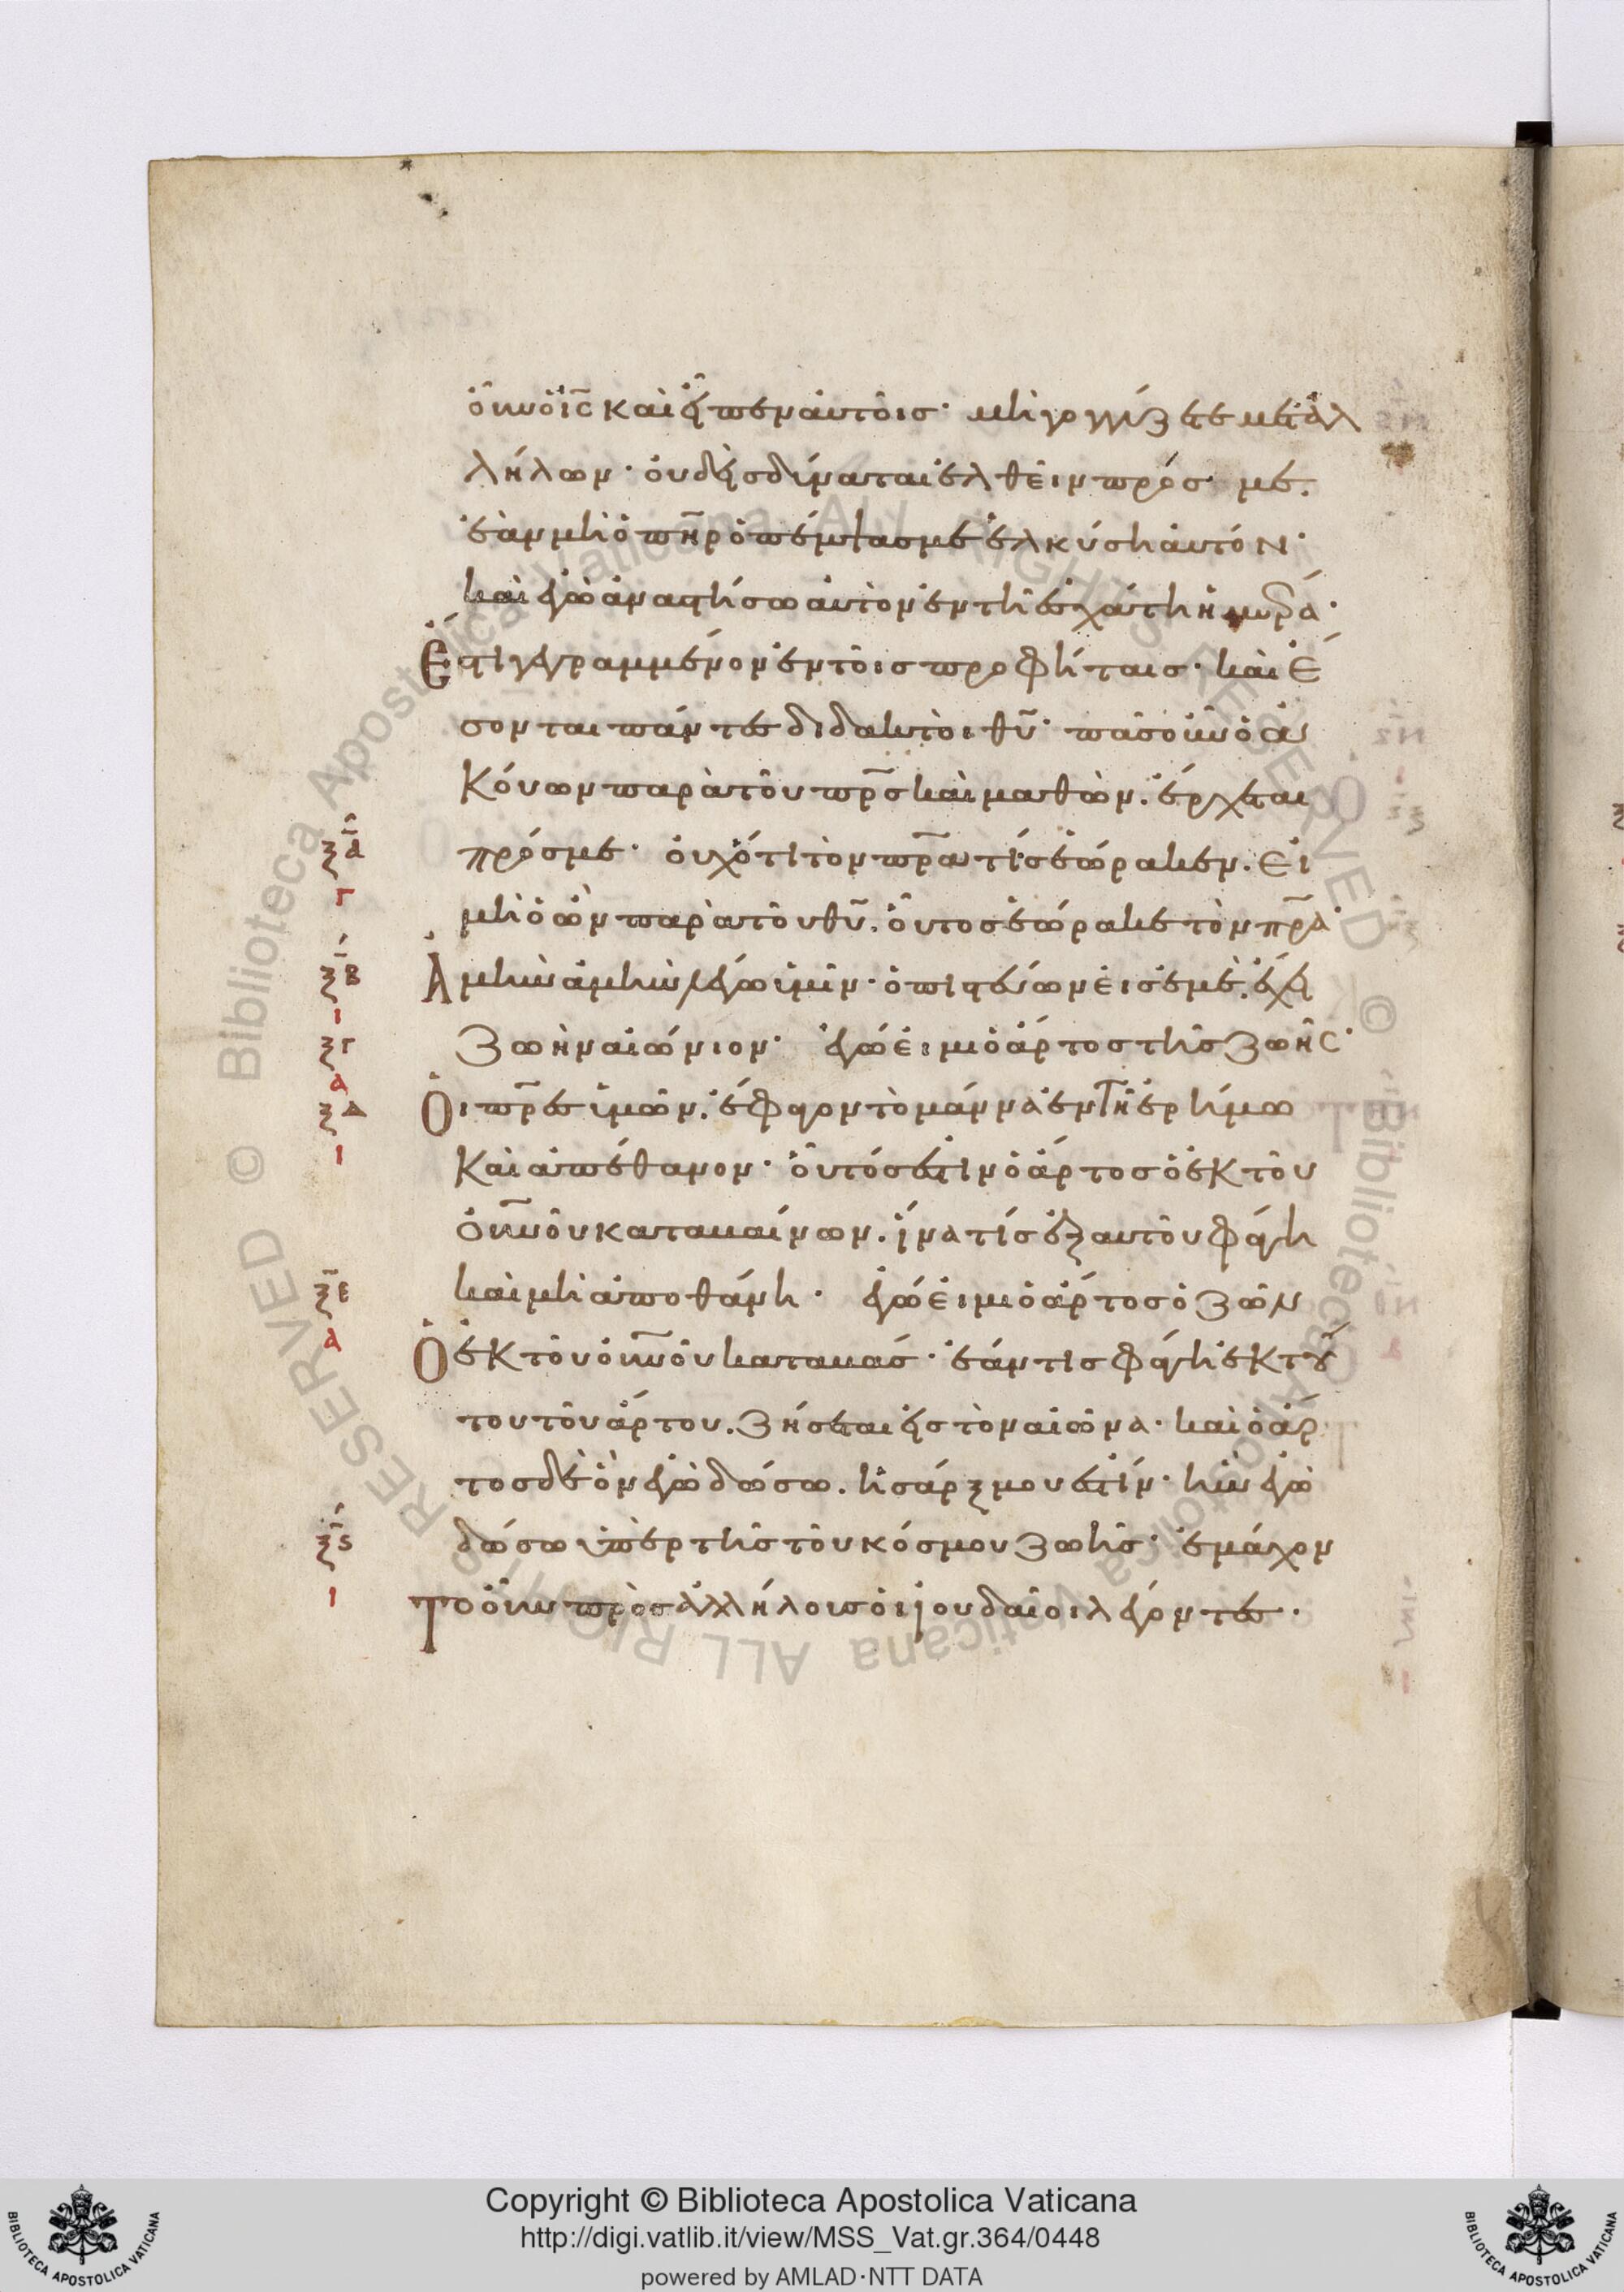 οὖν ὁ ι̅ς̅ καὶ εἶπεν αὐτοῖς· μὴ γογγύζετε μετἀλ
λήλων· οὐδεὶς δύναται ἐλθεῖν πρός με.
ἐὰν μὴ ὁ π̅η̅ρ̅ ὁ πέμψας με ἑλκύση αὐτόν·
καὶ ἐγὼ ἀναστήσω αὐτὸν ἐν τῆ ἐσχάτη ἡμέρα·
Ἔστι γεγραμμένον ἐν τοῖς προφήταις· καὶ ἔ
σονται πάντες διδακτοὶ θ̅υ̅· πᾶς οὖν ὁ ἀ
κούων παρὰ τοῦ π̅ρ̅ς̅ καὶ μαθὼν. ἔρχεται
ξ̅α̅ πρός με· οὐχ ὅτι τὸν π̅ρ̅α̅ τίς ἑώρακεν. εἰ
Γ μὴ ὁ ὢν παρὰ τοῦ θ̅υ̅. οὗτος ἑώρακε τὸν π̅ρ̅α̅·
ξ̅β̅ Ἀμὴν ἀμὴν λέγω ὑμῖν· ὁ πιστεύων εἰς ἐμὲ. ἔχει
Ι
ξγ ζωὴν αἰώνιον· ἐγώ εἰμι ὁ ἄρτος τῆς ζωῆς·
Α
ξδ Οἱ π̅ρ̅ε̅ς̅ ὑμῶν. ἔφαγον τὸ μάννα ἐν τῆ ἐρήμω
Ι καὶ ἀπέθανον· οὗτός ἐστιν ὁ ἄρτος ὁ ἐκ τοῦ
ο̅υ̅ν̅οῦ καταβαίνων. ἵνα τίς ἐξ αὐτοῦ φάγη
ξ̅ε̅ καὶ μὴ ἀποθάνη· ἐγώ εἰμι ὁ ἄρτος ὁ ζῶν
Α Ὁ ἐκ τοῦ ο̅υ̅ν̅οῦ καταβάς· ἐάν τις φάγη ἐκ τού
του τοῦ ἄρτου. ζήσεται εἰς τὸν αἰῶνα· καὶ ὁ ἄρ
τος δὲ ὃν ἐγὼ δώσω. ἡ σάρξ μου ἐστίν· ἣν ἐγὼ
ξ̅ς̅ δώσω ὑπὲρ τῆς τοῦ κόσμου ζωῆς· ἐμάχον
Ι Το οὖν πρὸς ἀλλήλους οἱ ἰουδαῖοι λέγοντες·
© Biblioteca Apostolica Vaticana ALL RIGHTS RESERVED © Biblioteca Apostolica Vaticana ALL RIGHTS RESERVED
BIBLIOTECA APOSTOLICA VATICANA
Copyright © Biblioteca Apostolica Vaticana
http://digi.vatlib.it/view/MSS_Vat.gr.364/0448
powered by AMLAD·NTT DATA
BIBLIOTECA APOSTOLICA VATICANA